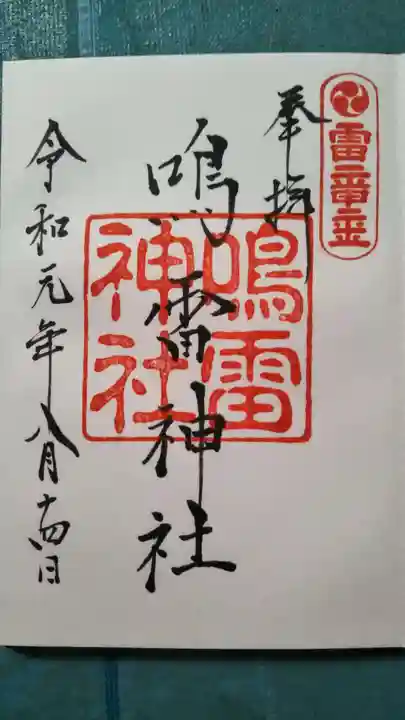 雷電宮
奉拝
鳴雷神社
鳴雷
神社
令和元年八月十四日